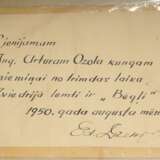 Cienījamam
Ing. Arturam Ozola kungam
piemiņai no trimdas laika
Zviedrijā lemti ir „Bēgļi"
1950. gada augusta mēn